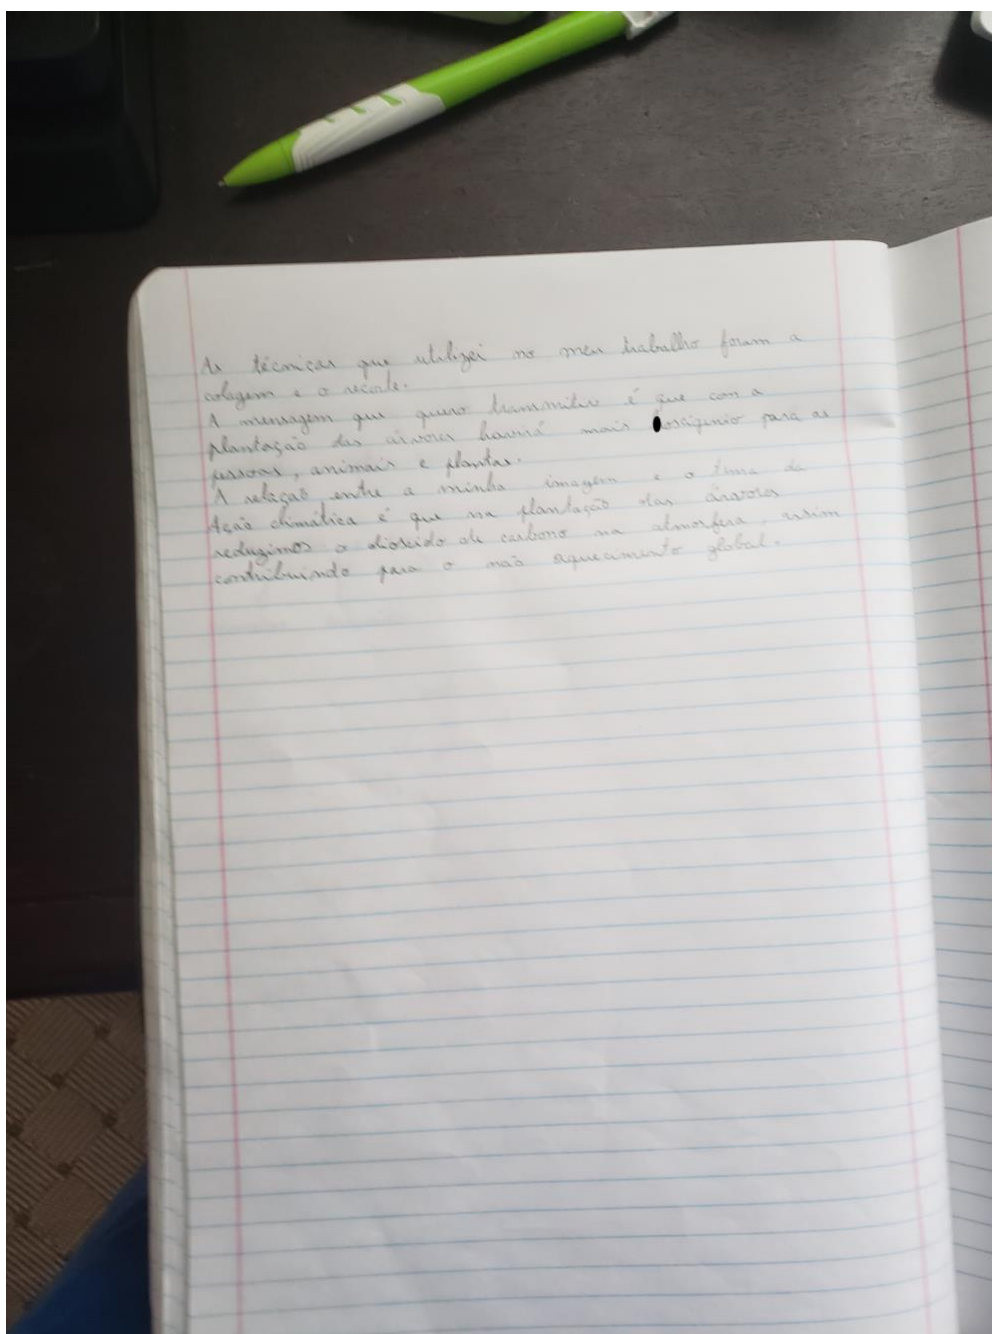 As técnicas que utilizei no meu trabalho foram a
colagem e o recorte.
A mensagem que quero transmitir é que com a
plantação das árvores haverá mais oxigénio para as
pessoas, animais e plantas.
A relação entre a minha imagem e o tema da
Ação climática é que na plantação das árvores
reduzimos o dioxido de carbono na atmosfera, assim
contribuindo para o não aquecimento global.